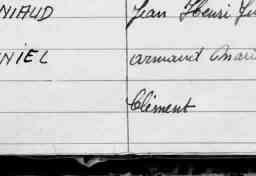 NIAUD Jean Henri
NIEL Armand Marie
Clément